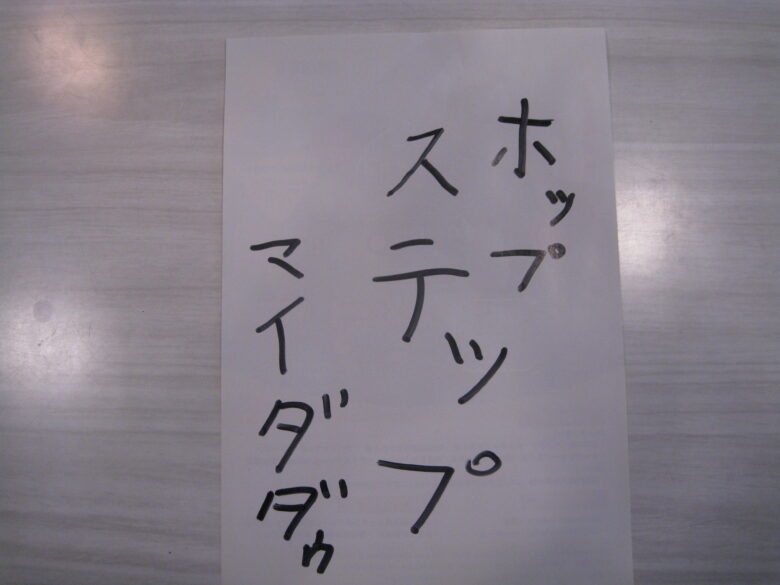 ホップ
ステップ
マイダダゥ